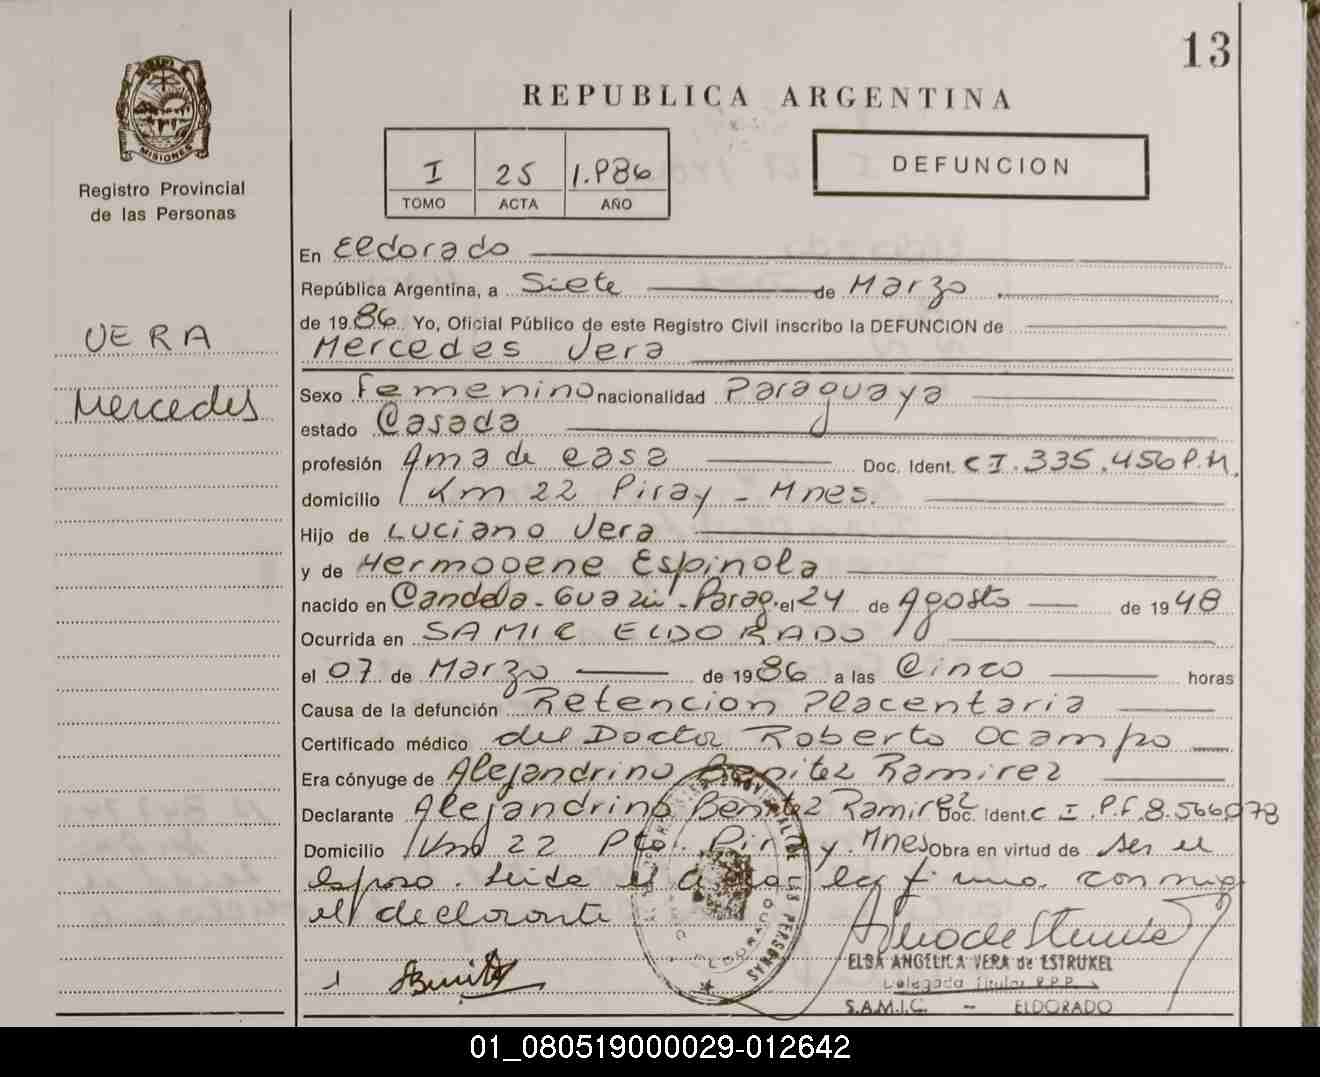 13
REPUBLICA ARGENTINA
MISIONES
Registro Provincial
de las Personas
I 25 1.986
TOMO ACTA AÑO
DEFUNCION
VERA
Mercedes
En Eldorado
República Argentina, a Siete de Marzo
de 1986 Yo, Oficial Público de este Registro Civil inscribo la DEFUNCION de
Mercedes Vera
Sexo Femenino nacionalidad Paraguaya
estado Casada
profesión Ama de casa Doc. Ident. C I. 335.456 P.M.
domicilio Km 22 Piray - Mnes.
Hijo de Luciano Vera
y de Hermogene Espinola
nacido en Candela - Guazú - Parag. el 24 de Agosto de 1948
Ocurrida en SAMIC ELDORADO
el 07 de Marzo de 1986 a las Cinco horas
Causa de la defunción Retencion Placentaria
Certificado médico del Doctor Roberto Ocampo
Era cónyuge de Alejandrino Benitez Ramirez
Declarante Alejandrino Benitez Ramirez Doc. Ident. C I. P.F. 8.566.078
Domicilio Km 22 Pto. Piray. Mnes Obra en virtud de ser el
esposo. Leida el acta la firma conmigo
el declarante
Benitez
ELSA ANGELICA VERA de ESTRUKEL
Delegada Titular R.P.P.
S.A.M.I.C. - ELDORADO
01_080519000029-012642